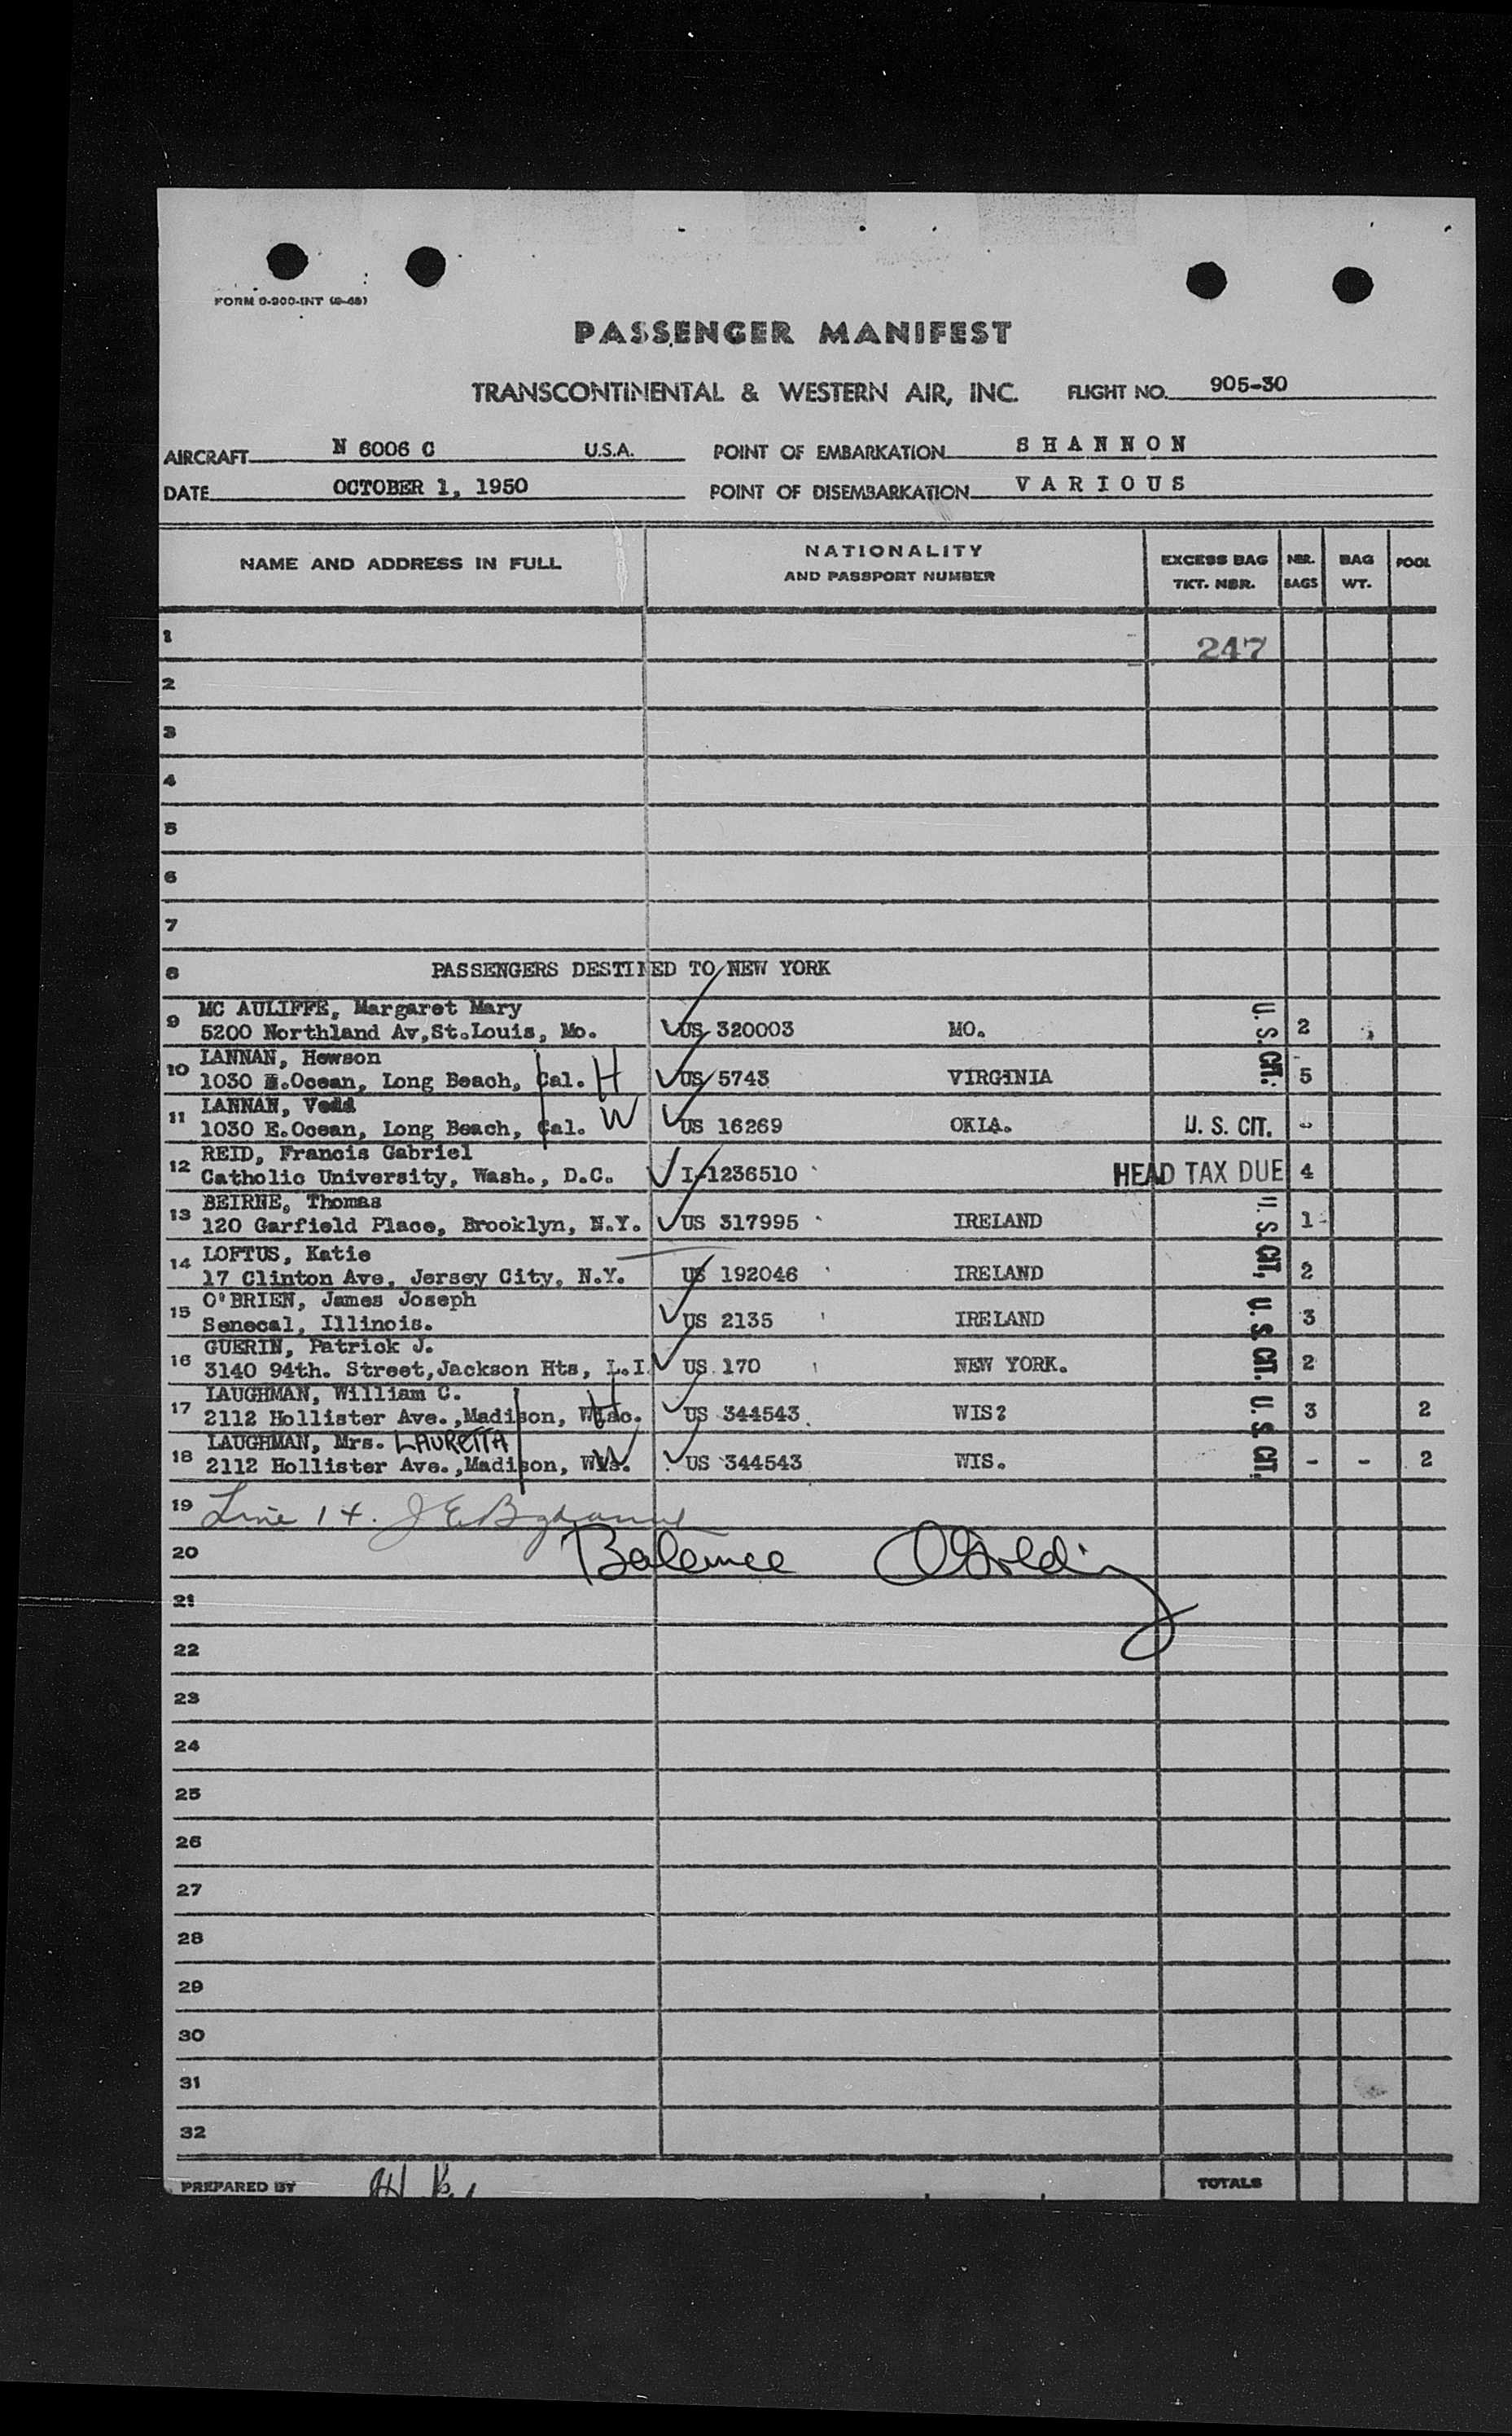 FORM 0-300-INT (9-48)
PASSENGER MANIFEST
TRANSCONTINENTAL & WESTERN AIR, INC. FLIGHT NO. 905-30
AIRCRAFT N 6006 C U.S.A. POINT OF EMBARKATION S H A N N O N
DATE OCTOBER 1, 1950 POINT OF DISEMBARKATION V A R I O U S
NAME AND ADDRESS IN FULL NATIONALITY AND PASSPORT NUMBER EXCESS BAG TKT. NBR. NBR. BAGS BAG WT. POOL
1 247
2
3
4
5
6
7
8 PASSENGERS DESTINED TO NEW YORK
9 MC AULIFFE, Margaret Mary
5200 Northland Av,St.Louis, Mo. US 320003 MO. U. S. CIT. 2
10 LANNAN, Hewson
1030 E.Ocean, Long Beach, Cal. H US 5743 VIRGINIA 5
11 LANNAN, Vedd
1030 E.Ocean, Long Beach, Cal. W US 16269 OKLA. U. S. CIT. -
12 REID, Francis Gabriel
Catholic University, Wash., D.C. I-1236510 HEAD TAX DUE 4
13 BEIRNE, Thomas
120 Garfield Place, Brooklyn, N.Y. US 317995 IRELAND U. S. CIT. 1
14 LOFTUS, Katie
17 Clinton Ave, Jersey City, N.Y. US 192046 IRELAND 2
15 O'BRIEN, James Joseph
Senecal, Illinois. US 2135 IRELAND U. S. CIT. 3
16 GUERIN, Patrick J.
3140 94th. Street,Jackson Hts, L.I. US 170 NEW YORK. 2
17 LAUGHMAN, William C.
2112 Hollister Ave.,Madison, Wisc. H US 344543 WIS? U. S. CIT. 3 2
18 LAUGHMAN, Mrs. LAURETTA
2112 Hollister Ave.,Madison, Wis. W US 344543 WIS. - - 2
19 Line 14. J E
20 Balance
21
22
23
24
25
26
27
28
29
30
31
32
PREPARED BY TOTALS